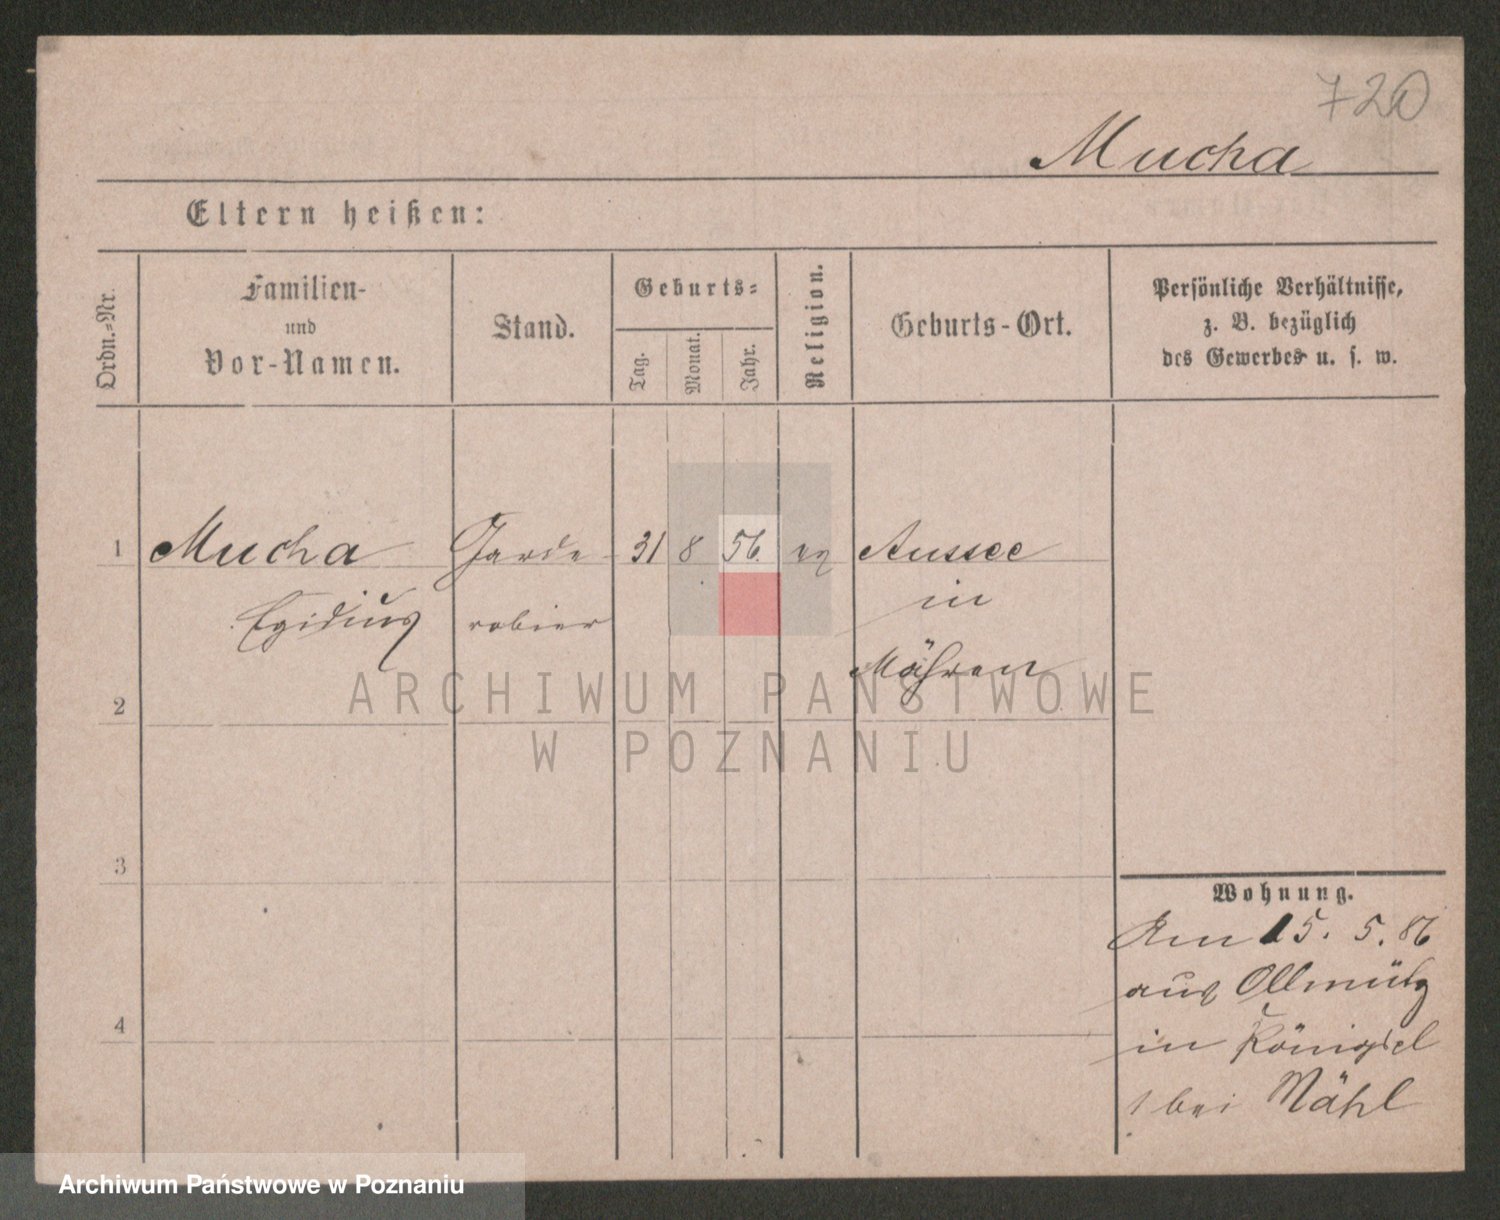 720
Mucha
Eltern heißen:
Ordn.-Nr.
Familien-
und
Vor-Namen.
Stand.
Geburts-
Tag.
Monat.
Jahr.
Religion.
Geburts-Ort.
Persönliche Verhältnisse,
z. B. bezüglich
des Gewerbes u. s. w.
1 Mucha Garde- 31 8 56. Aussee
Egidius robier in
Mähren
2
ARCHIWUM PAŃSTWOWE
W POZNANIU
3
Wohnung.
Am 15. 5. 86
aus Ollmütz
in
4
bei Mähl
Archiwum Państwowe w Poznaniu